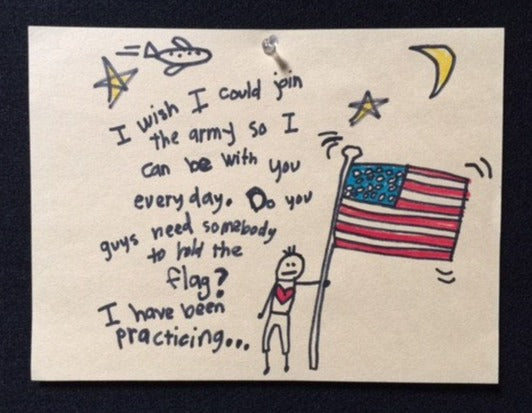 I wish I could join
the army so I
can be with you
every day. Do you
guys need somebody
to hold the
flag?
I have been
practicing...